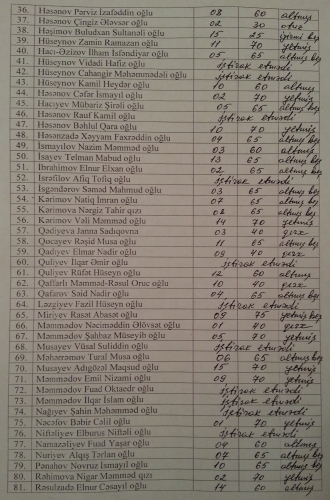 36. Həsənov Pərviz İzafəddin oğlu 08 60 altmış
37. Həsənov Çingiz Ələvsər oğlu 02 30 otuz
38. Həşimov Buludxan Sultanəli oğlu 15 25 iyirmi beş
39. Hüseynov Zamin Ramazan oğlu 11 70 yetmiş
40. Hacı-Əzizov İlham İsfəndiyar oğlu 05 65 altmış beş
41. Hüseynov Vidadi Hafiz oğlu iştirak etmədi
42. Hüseynov Cahangir Məhəmmədəli oğlu iştirak etmədi
43. Hüseynov Kamil Heydər oğlu 10 60 altmış
44. Həsənov Cəfər İsmayıl oğlu 02 70 yetmiş
45. Hacıyev Mübariz Şirəli oğlu 05 65 altmış beş
46. Həsənov Rauf Kamil oğlu iştirak etmədi
47. Həsənov Bəhlul Qara oğlu 10 70 yetmiş
48. Həsənzadə Xəyyam Faxrəddin oğlu 04 65 altmış beş
49. İsmayılov Nazim Məmməd oğlu 03 60 altmış
50. İsayev Telman Mabud oğlu 13 65 altmış beş
51. İbrahimov Elnur Elxan oğlu 02 65 altmış beş
52. İsrəfilov Afiq Tofiq oğlu iştirak etmədi
53. İsgəndərov Səməd Mahmud oğlu 03 65 altmış beş
54. Kərimov Natiq İmran oğlu 07 65 altmış beş
55. Kərimova Nərgiz Tahir qızı 02 65 altmış beş
56. Kərimov Vəli Məmməd oğlu 14 70 yetmiş
57. Qədiyeva Janna Sadıqovna 03 40 qırx
58. Qocayev Rəşid Musa oğlu 11 65 altmış beş
59. Qədiyev Elmar Nadir oğlu 09 40 qırx
60. Quliyev İlqar Əmir oğlu iştirak etmədi
61. Quliyev Rüfət Hüseyn oğlu 12 60 altmış
62. Qəffarlı Məmməd-Rəsul Oruc oğlu 10 40 qırx
63. Qafarov Səid Nadir oğlu 04 65 altmış beş
64. Ləzgiyev Fazil Hüseyn oğlu iştirak etmədi
65. Miriyev Rasət Abasət oğlu 09 75 yetmiş beş
66. Məmmədov Nəciməddin Əlövsət oğlu 01 40 qırx
67. Məmmədov Şahbaz Müseyib oğlu 05 70 yetmiş
68. Musayev Vüsal Suliddin oğlu iştirak etmədi
69. Məhərrəmov Tural Musa oğlu 06 65 altmış beş
70. Musayev Adıgözəl Maqsud oğlu 15 70 yetmiş
71. Məmmədov Emil Nizami oğlu 09 70 yetmiş
72. Məmmədov Fuad Oktaedr oğlu iştirak etmədi
73. Məmmədov İlqar İslam oğlu iştirak etmədi
74. Nağıyev Şahin Məhəmməd oğlu iştirak etmədi
75. Nəcəfov Bəbir Cəlil oğlu 01 70 yetmiş
76. Niftəliyev Elburus Niftəli oğlu iştirak etmədi
77. Namazəliyev Fuad Yaşar oğlu 04 60 altmış
78. Nuriyev Alqış Tərlan oğlu 07 65 altmış beş
79. Pənahov Novruz İsmayıl oğlu 10 65 altmış beş
80. Rəhimova Nigar Məmməd qızı 02 70 yetmiş
81. Rəsulzadə Elnur Cəsayıl oğlu 14 60 altmış